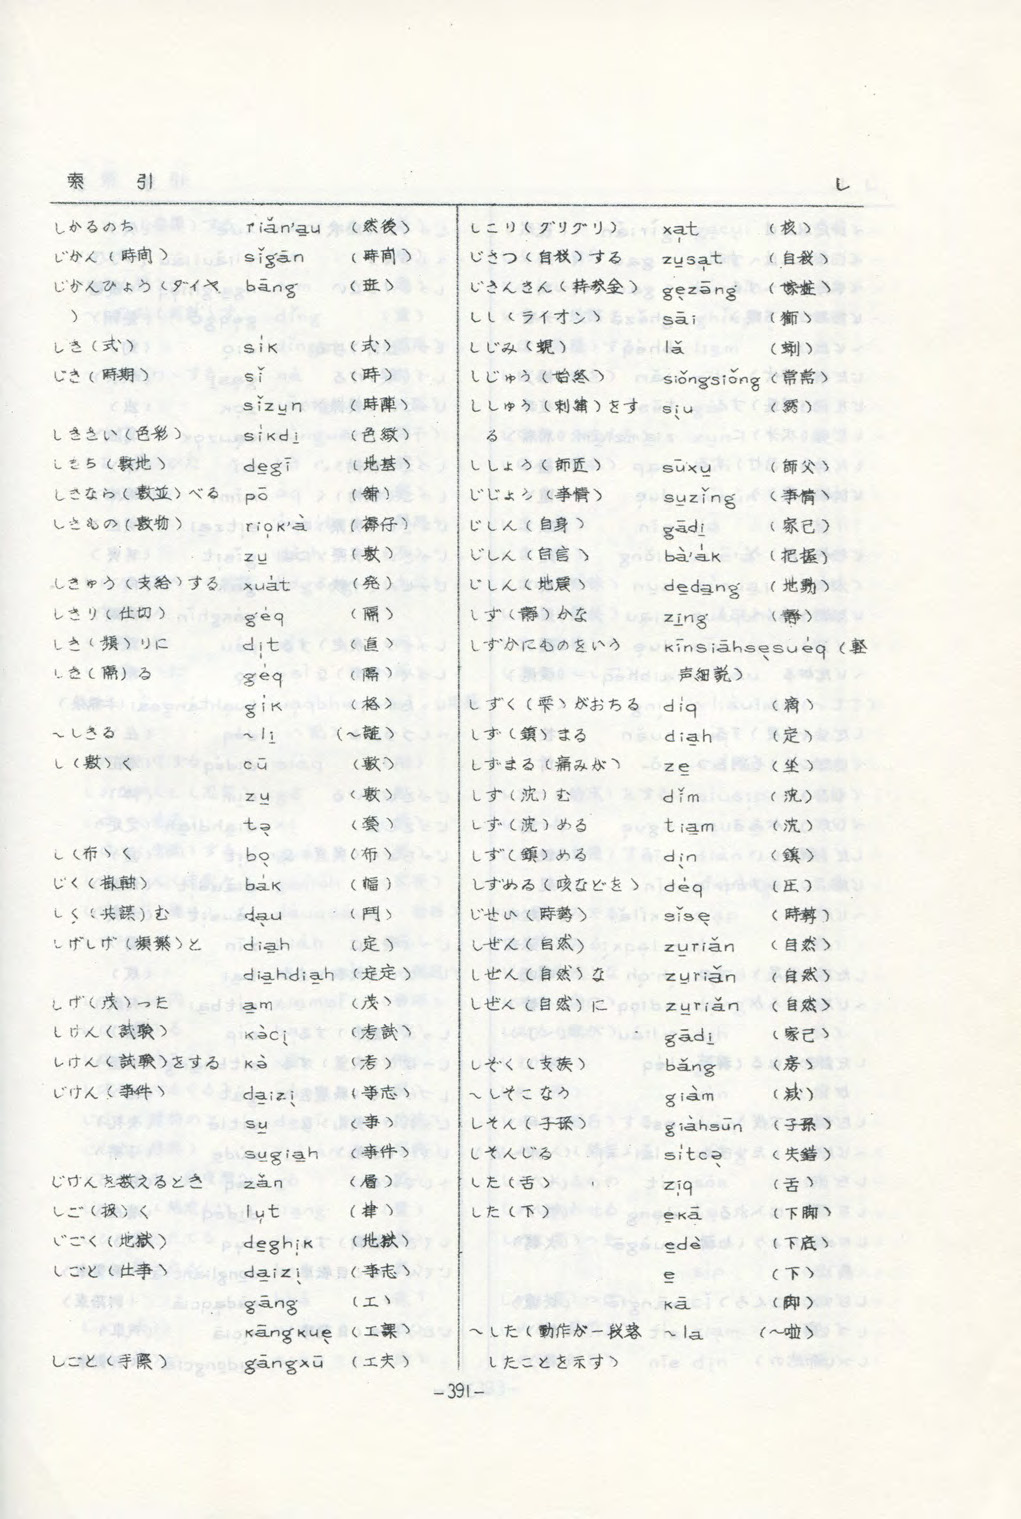 索 引 し
しかるのち riǎn'a̲u (然後)
じかん(時间) sǐgān (時间)
じかんひょう(ダイヤ bāng (班)
)
しき(式) si̍k (式)
じき(時期) sǐ (時)
sǐzu̲n (時陣)
しきさい(色彩) si̍kdi̲ (色緻)
しきち(敷地) de̲gī (地基)
しきなら(敷並)べる pō (舗)
しきもの(敷物) rio̩k'à (褥仔)
zu̲ (敷)
しきゅう(支給)する xua̍t (発)
しきり(仕切) ge̍q (隔)
しき(頻)りに di̩t (直)
しき(隔)る ge̍q (隔)
gi̍k (格)
〜しきる 〜li̲ (〜離)
し(敷)く cū (敷)
zu̲ (敷)
tə̩
し(布)く bo̩ (布)
じく(掛軸) ba̍k (幅)
しく(共謀)む da̩u (鬥)
しげしげ(頻繁)と dia̲h (定)
dia̲hdia̲h (定定)
しげ(茂)った a̲m (茂)
しけん(試験) kə̀ci̩ (考試)
しけん(試験)をする kə̀ (考)
じけん(事件) da̲izi̩ (事志)
su̲ (事)
su̲gia̲h (事件)
じけんを数えるとき zǎn (層)
しご(扱)く lu̩t (律)
じごく(地獄) de̲ghi̩k (地獄)
しごと(仕事) da̲izi̩ (事志)
gāng (工)
kāngkue̩ (工課)
しごと(手際) gāngxū (工夫)
しこり(グリグリ) xa̩t (核)
じさつ(自殺)する zu̲sa̩t (自殺)
じさんきん(持参金) ge̩zōng (嫁粧)
しし(ライオン) sāi (獅)
しじみ(蜆) lǎ (蜊)
しじゅう(始終) siǒngsiǒng (常常)
ししゅう(刺繍)をす si̩u (綉)
る
ししょう(師匠) sūxu̲ (師父)
じじょう(事情) su̲zǐng (事情)
じしん(自身) gādi̲ (家己)
じしん(自信) bà'a̍k (把握)
じしん(地震) de̲da̲ng (地動)
しず(静)かな zi̲ng (静)
しずかにものをいう kīnsiāhse̩sue̍q (軽
声細説)
しずく(雫)がおちる di̍q (滴)
しず(鎮)まる dia̲h (定)
しずまる(痛みが) ze̲ (坐)
しず(沈)む dǐm (沈)
しず(沈)める tia̲m (沈)
しず(鎮)める di̩n (鎮)
しずめる(咳などを) de̍q (圧)
じせい(時勢) sǐse̩ (時勢)
しぜん(自然) zu̲riǎn (自然)
しぜん(自然)な zu̲riǎn (自然)
しぜん(自然)に zu̲riǎn (自然)
gādi̲ (家己)
しぞく(支族) bǎng (房)
〜しそこなう giàm (減)
しそん(子孫) giàhsūn (子孫)
しそんじる si̍tcə̩ (失錯)
した(舌) zi̩q (舌)
した(下) e̲kā (下脚)
e̲dè (下底)
e̲ (下)
kā (脚)
〜した(動作が一段落 〜la (〜啦)
したことを示す)
-391-